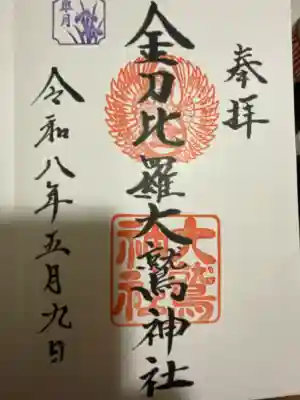 奉拝
金刀比羅大鷲神社
大鷲
神社
皐月
令和八年五月九日